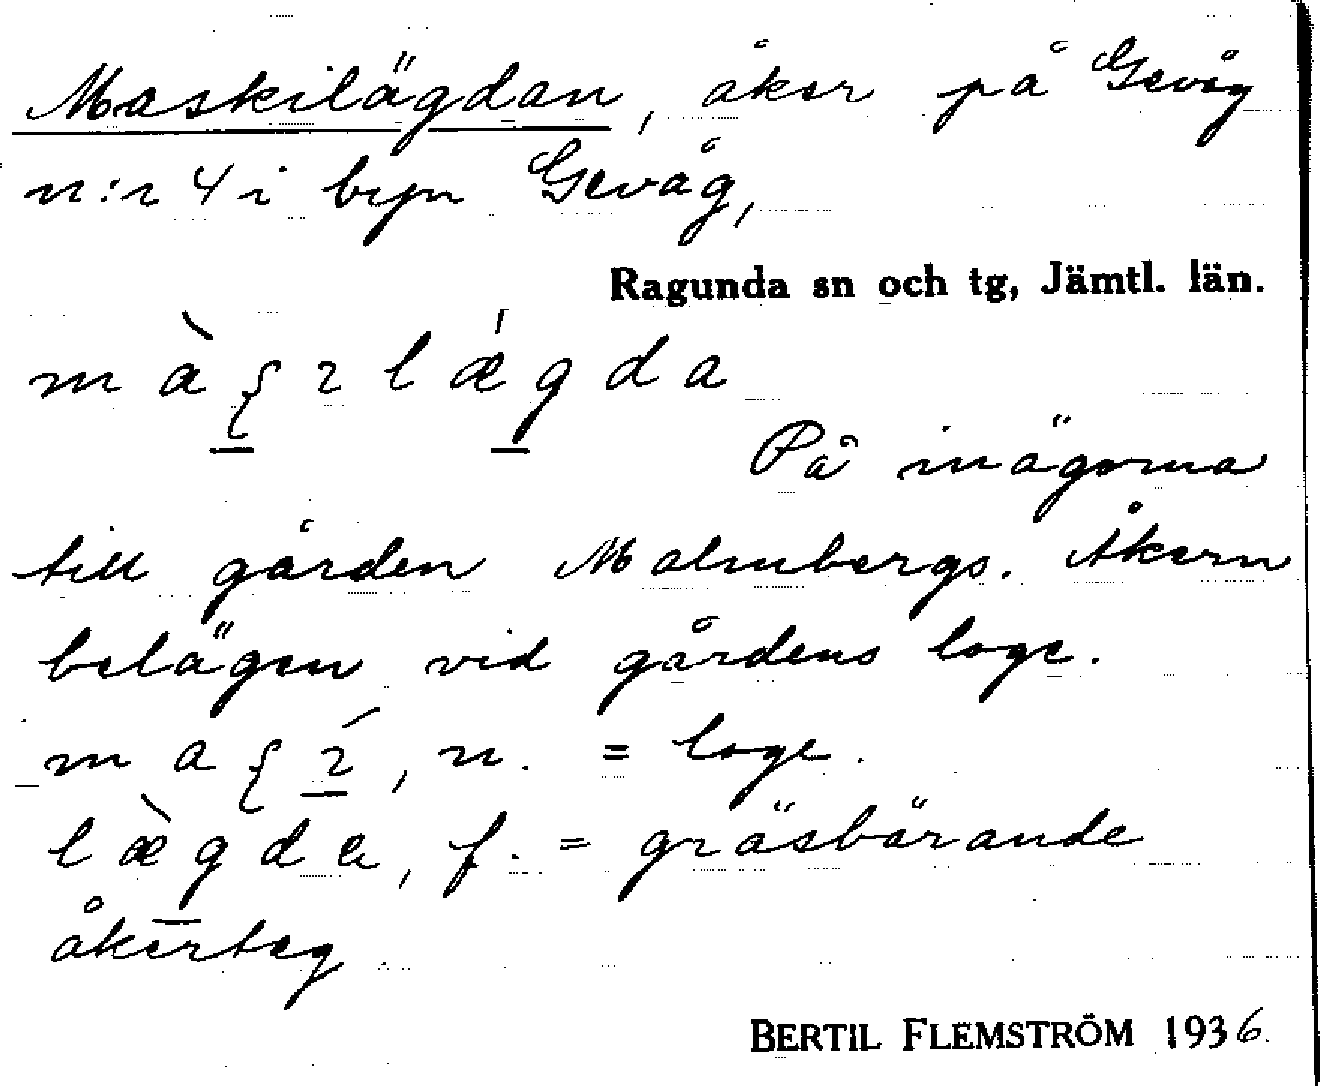 Maskilägdan, åker på Gevåg
n:r 4 i byn Gevåg,
Ragunda sn och tg, Jämtl. län.
På inägorna
till gården Malmbergs. Åkern
belägen vid gårdens loge.
n. = loge.
f. = gräsbärande
åkerteg
BERTIL FLEMSTRÖM 1936.